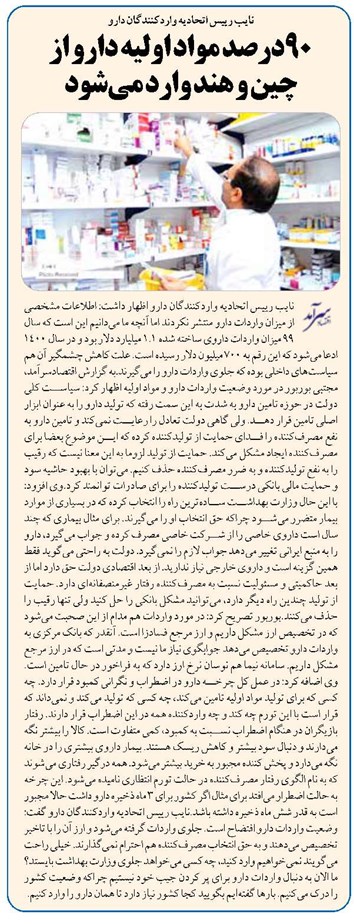 نایب رییس اتحادیه واردکنندگان دارو
۹۰درصدمواد اولیه دارو از
چین و هند وارد می‌شود
نایب رییس اتحادیه واردکنندگان دارو اظهار داشت: اطلاعات مشخصی
از میزان واردات دارو منتشر نکردند اما آنچه ما می‌دانیم این است که سال
۹۹ میزان واردات داروی ساخته شده ۱.۱ میلیارد دلار بود و در سال ۱۴۰۰
ادعا می‌شود که این رقم به ۷۰۰ میلیون دلار رسیده است. علت کاهش چشمگیر آن هم
سیاست‌های داخلی بوده که جلوی واردات دارو را می‌گیرند.به گزارش اقتصادسرآمد،
مجتبی بوربور در مورد وضعیت واردات دارو و مواد اولیه اظهار کرد: سیاست کلی
دولت در حوزه تامین دارو به شدت به این سمت رفته که تولید دارو را به عنوان ابزار
اصلی تامین قرار دهد. ولی گاهی دولت تعادل را رعایت نمی‌کند و تامین دارو به
نفع مصرف‌کننده را فدای حمایت از تولیدکننده کرده که این موضوع بعضا برای
مصرف‌کننده ایجاد مشکل می‌کند. حمایت از تولید لزوما به این معنا نیست که رقیب
را به نفع تولیدکننده و به ضرر مصرف‌کننده حذف کنیم. می‌توان با بهبود حاشیه سود
و حمایت مالی بانکی درست تولیدکننده را برای صادرات توانمند کرد.وی افزود:
با این حال وزارت بهداشت ساده‌ترین راه را انتخاب کرده که در بسیاری از موارد
بیمار متضرر می‌شود چراکه حق انتخاب او را می‌گیرند. برای مثال بیماری که چند
سال است داروی خاصی را از شرکت خاصی مصرف کرده و جواب می‌گیرد، دارو
را به منبع ایرانی تغییر می‌دهد جواب لازم را نمی‌گیرد. دولت به راحتی می‌گوید فقط
همین گزینه است و داروی خارجی نیاز ندارید. از بعد اقتصادی دولت حق دارد اما از
بعد حاکمیتی و مسئولیت نسبت به مصرف‌کننده رفتار غیرمنصفانه‌ای دارد. حمایت
از تولید چندین راه دیگر دارد، می‌توانید مشکل بانکی را حل کنید ولی تنها رقیب را
حذف می‌کنند.بوربور تصریح کرد: در مورد واردات هم مدام از این صحبت می‌شود
که در تخصیص ارز مشکل داریم و ارز مرجع فسادزا است. آنقدر که بانک مرکزی به
واردات دارو تخصیص می‌دهد جوابگوی نیاز ما نیست و مدتی است که در ارز مرجع
مشکل داریم. سامانه نیما هم نوسان نرخ ارز دارد که به فراخور در حال تامین است.
وی اضافه کرد: در عمل کل چرخه دارو در اضطراب و نگرانی کمبود قرار دارد. چه
کسی که برای تولید مواد اولیه تامین می‌کند، چه کسی که تولید می‌کند و نمی‌داند که
قرار است با این تورم چه کند و چه واردکننده همه در این اضطراب قرار دارند. رفتار
بازیگران در هنگام اضطراب نسبت به کمبود، کمی متفاوت است. کالا را بیشتر نگه
می‌دارند و دنبال سود بیشتر و کاهش ریسک هستند. بیمار داروی بیشتری را در خانه
نگه می‌دارد و پخش کننده مجبور به خرید بیشتر می‌شود. همه درگیر رفتاری می‌شوند
که به نام الگوی رفتار مصرف‌کننده در حالت تورم انتظاری نامیده می‌شود. این چرخه
به حالت اضطرار می‌افتد برای مثال اگر کشور برای ۳ ماه ذخیره دارو داشت حالا مجبور
است به قدر شش ماه ذخیره داشته باشد.نایب رییس اتحادیه واردکنندگان دارو گفت:
وضعیت واردات دارو افتضاح است. جلوی واردات گرفته می‌شود و ارز آن را با تاخیر
تخصیص می‌دهند و به حق انتخاب مصرف‌کننده هم احترام نمی‌گذارند. خیلی راحت
می‌گویند نمی‌خواهیم وارد کنید، چه کسی می‌خواهد جلوی وزارت بهداشت بایستد؟
ما الان به دنبال واردات دارو برای پر کردن جیب خود نیستیم چراکه وضعیت کشور
را درک می‌کنیم. بارها گفته‌ایم بگویید کجا کشور نیاز دارد تا همان دارو را وارد کنیم.